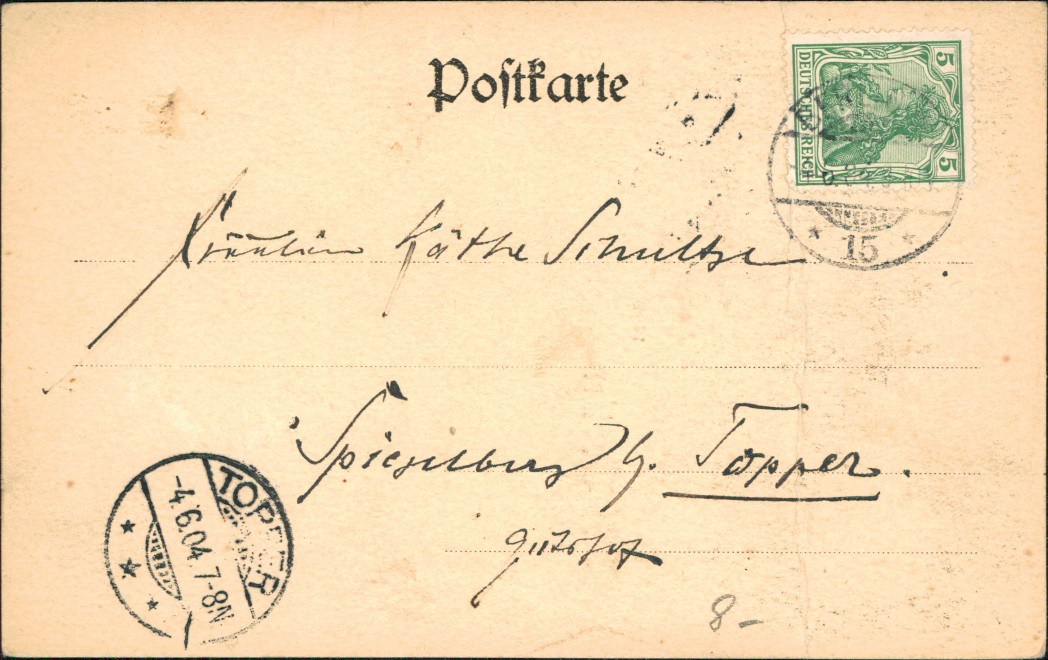 Postkarte
5 DEUTSCHES REICH 5
15
Fräulein Käthe Schultze
Spiegelberg b. Topper.
Gutshof
TOPPER
-4.6.04.7-8N
8-